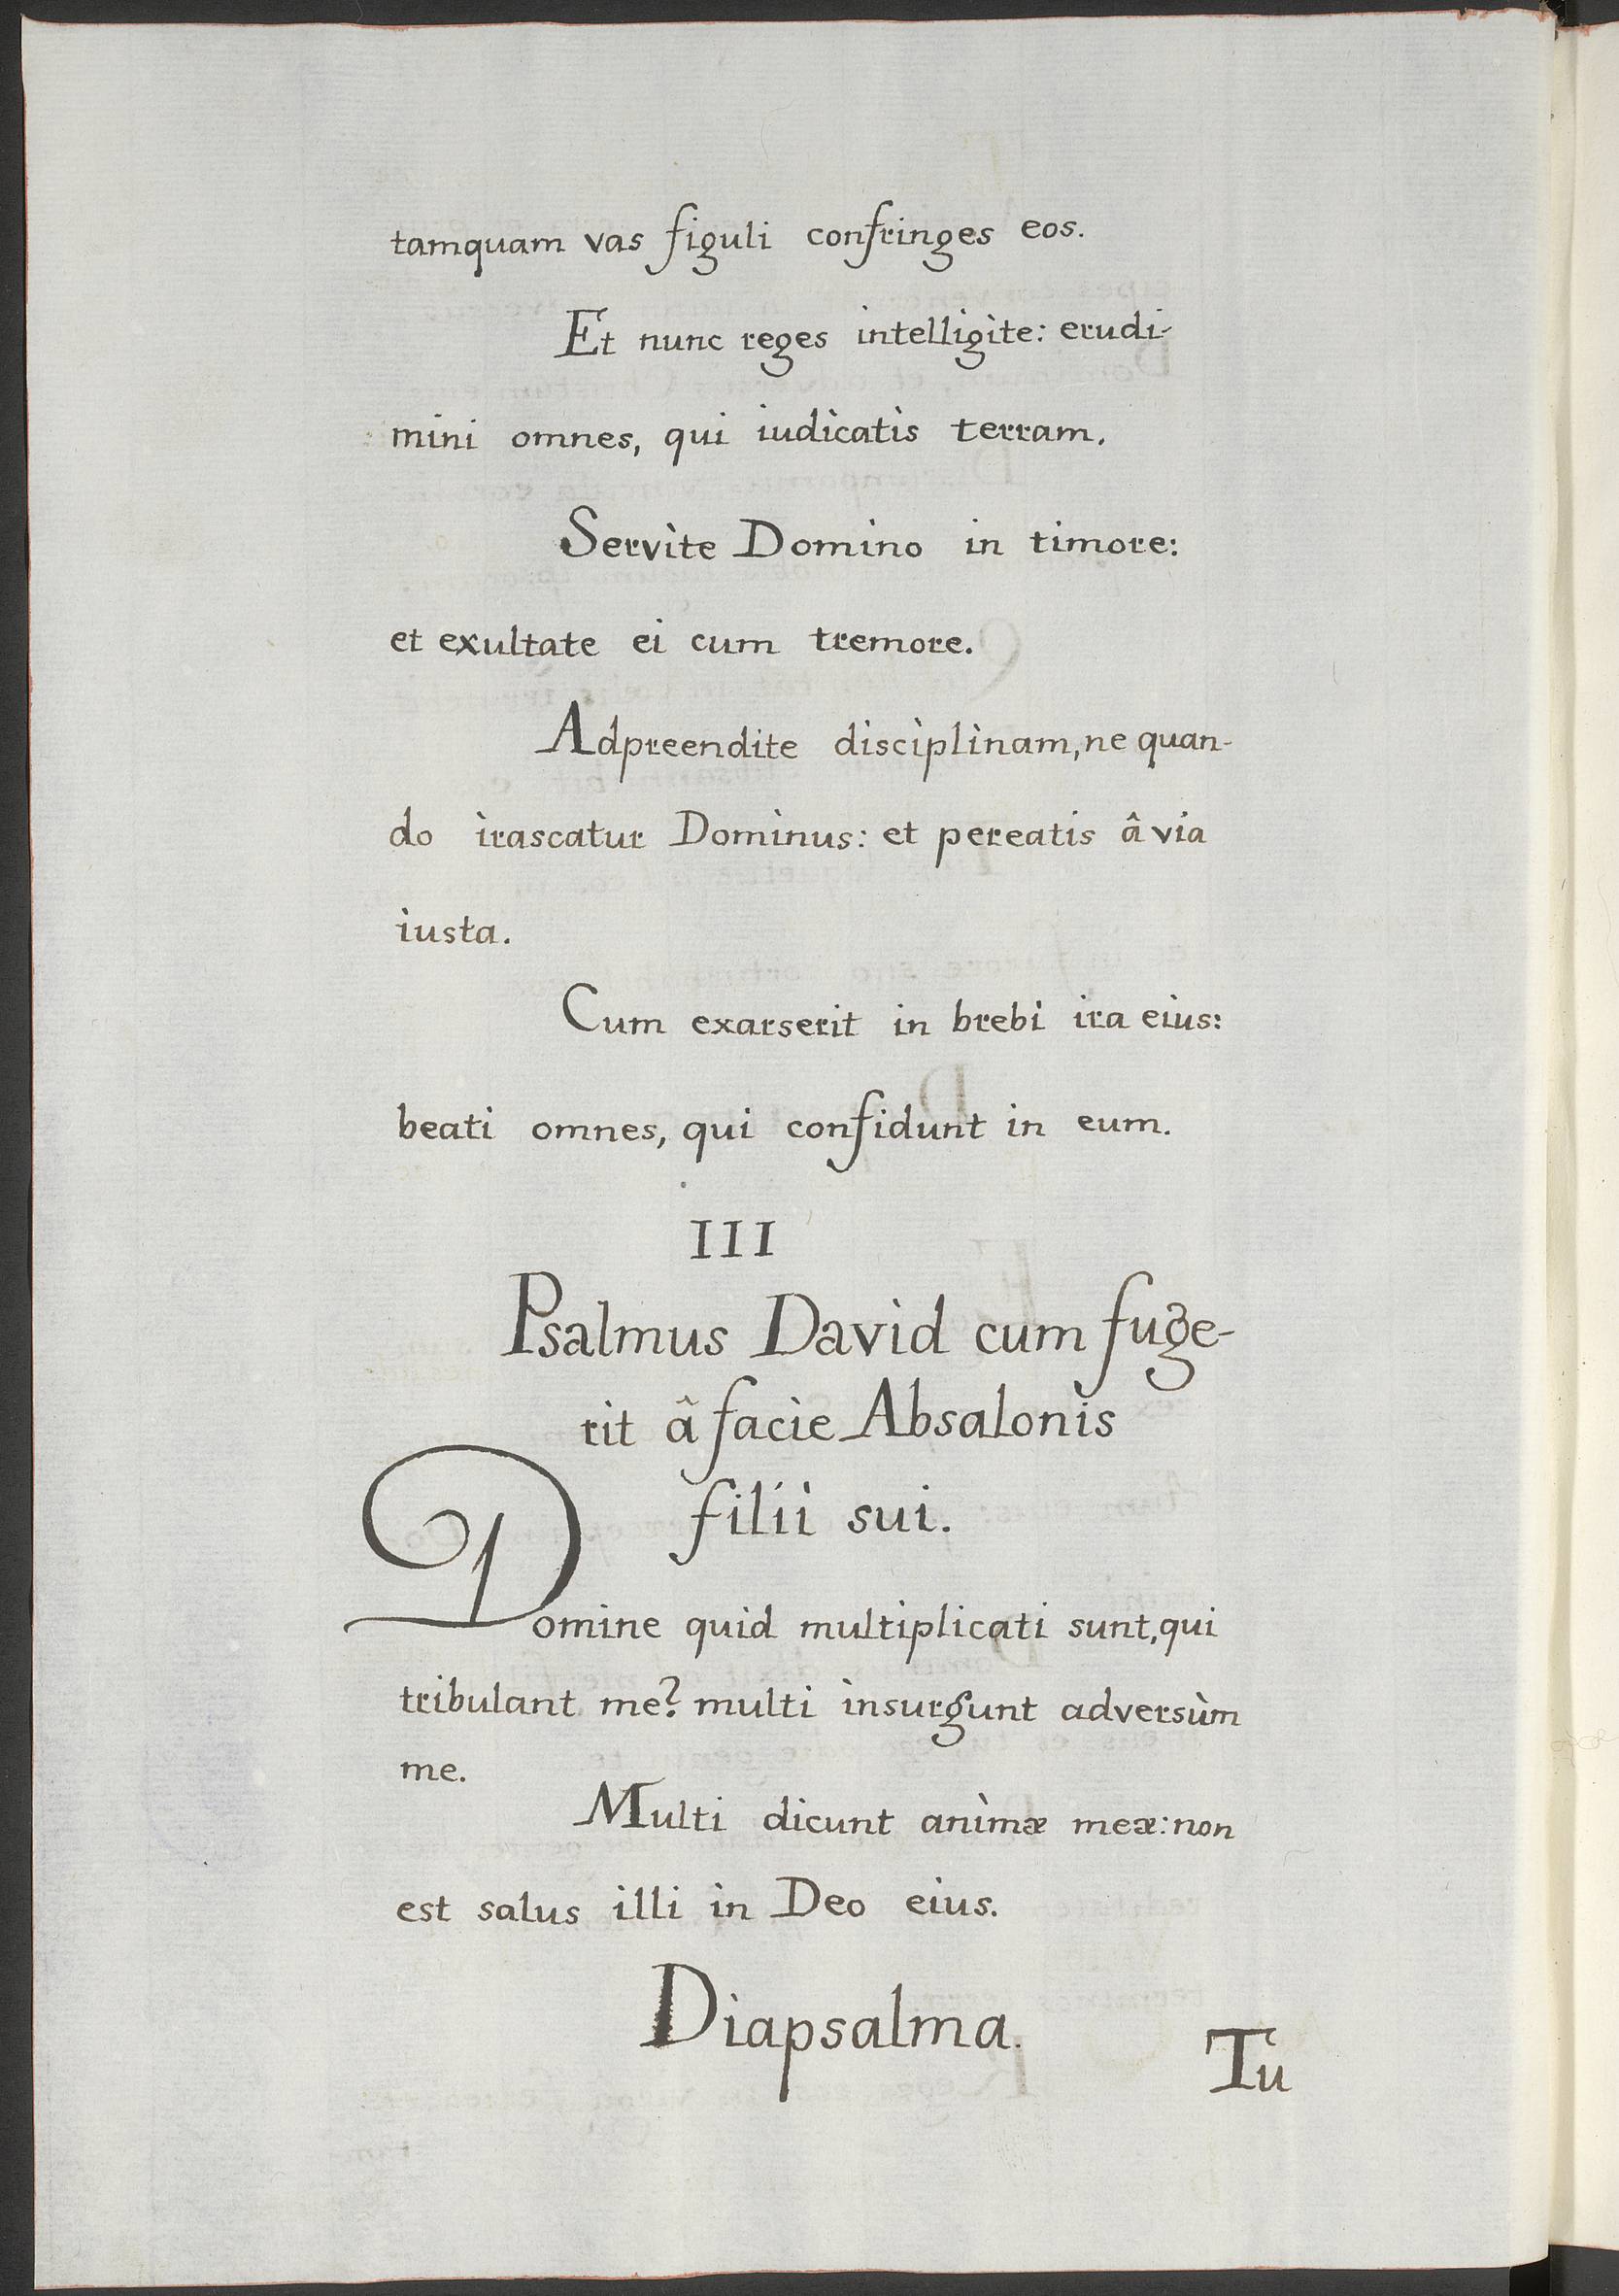 tamquam vas figuli confringes eos.
Et nunc reges intelligite: erudi-
mini omnes, qui iudicatis terram.
Servite Domino in timore:
et exultate ei cum tremore.
Adpreendite disciplinam, ne quan-
do irascatur Dominus: et pereatis â via
iusta.
Cum exarserit in brebi ira eius:
beati omnes, qui confidunt in eum.
III
Psalmus David cum fuge-
rit â facie Absalonis
filii sui.
Domine quid multiplicati sunt, qui
tribulant me? multi insurgunt adversùm
me.
Multi dicunt animæ meæ: non
est salus illi in Deo eius.
Diapsalma.
Tu